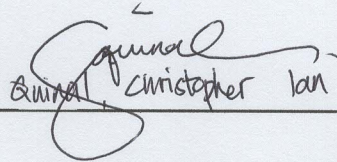 Quinal, Christopher Ian